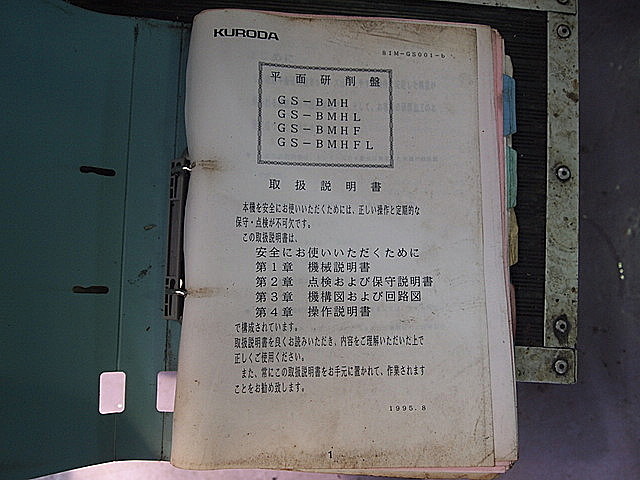 KURODA
BIM-GS001-b
平面研削盤
GS-BMH
GS-BMHL
GS-BMHF
GS-BMHFL
取扱説明書
本機を安全にお使いいただくためには、正しい操作と定期的な
保守・点検が不可欠です。
この取扱説明書は、
安全にお使いいただくために
第1章 機械説明書
第2章 点検および保守説明書
第3章 機構図および回路図
第4章 操作説明書
で構成されています。
取扱説明書を良くお読みいただき、内容をご理解いただいた上で
正しくご使用ください。
また、常にこの取扱説明書をお手元に置かれて、作業されます
ことをお勧め致します。
1995.8
1